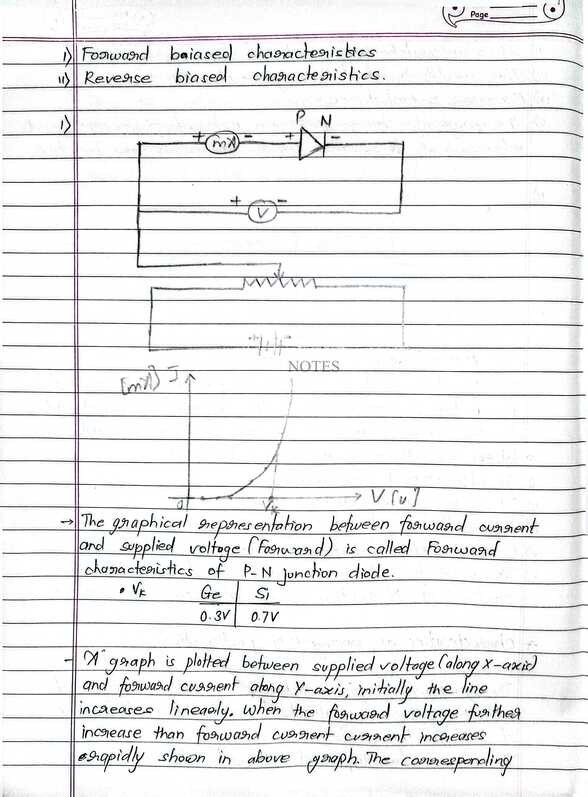 Page
i) Forward baiased characteristics
ii) Reverse biased characteristics.
i)
P N
+ mA - + -
+ V -
+ -
NOTES
(mA) I
0 Vk V (v)
→ The graphical representation between forward current
and supplied voltage (Forward) is called Forward
characteristics of P-N junction diode.
• VK Ge Si
0.3V 0.7V
- A graph is plotted between supplied voltage (along X-axis)
and forward current along Y-axis, initially the line
increases linearly. When the forward voltage further
increase than forward current current increases
rapidly shown in above graph. The corresponding